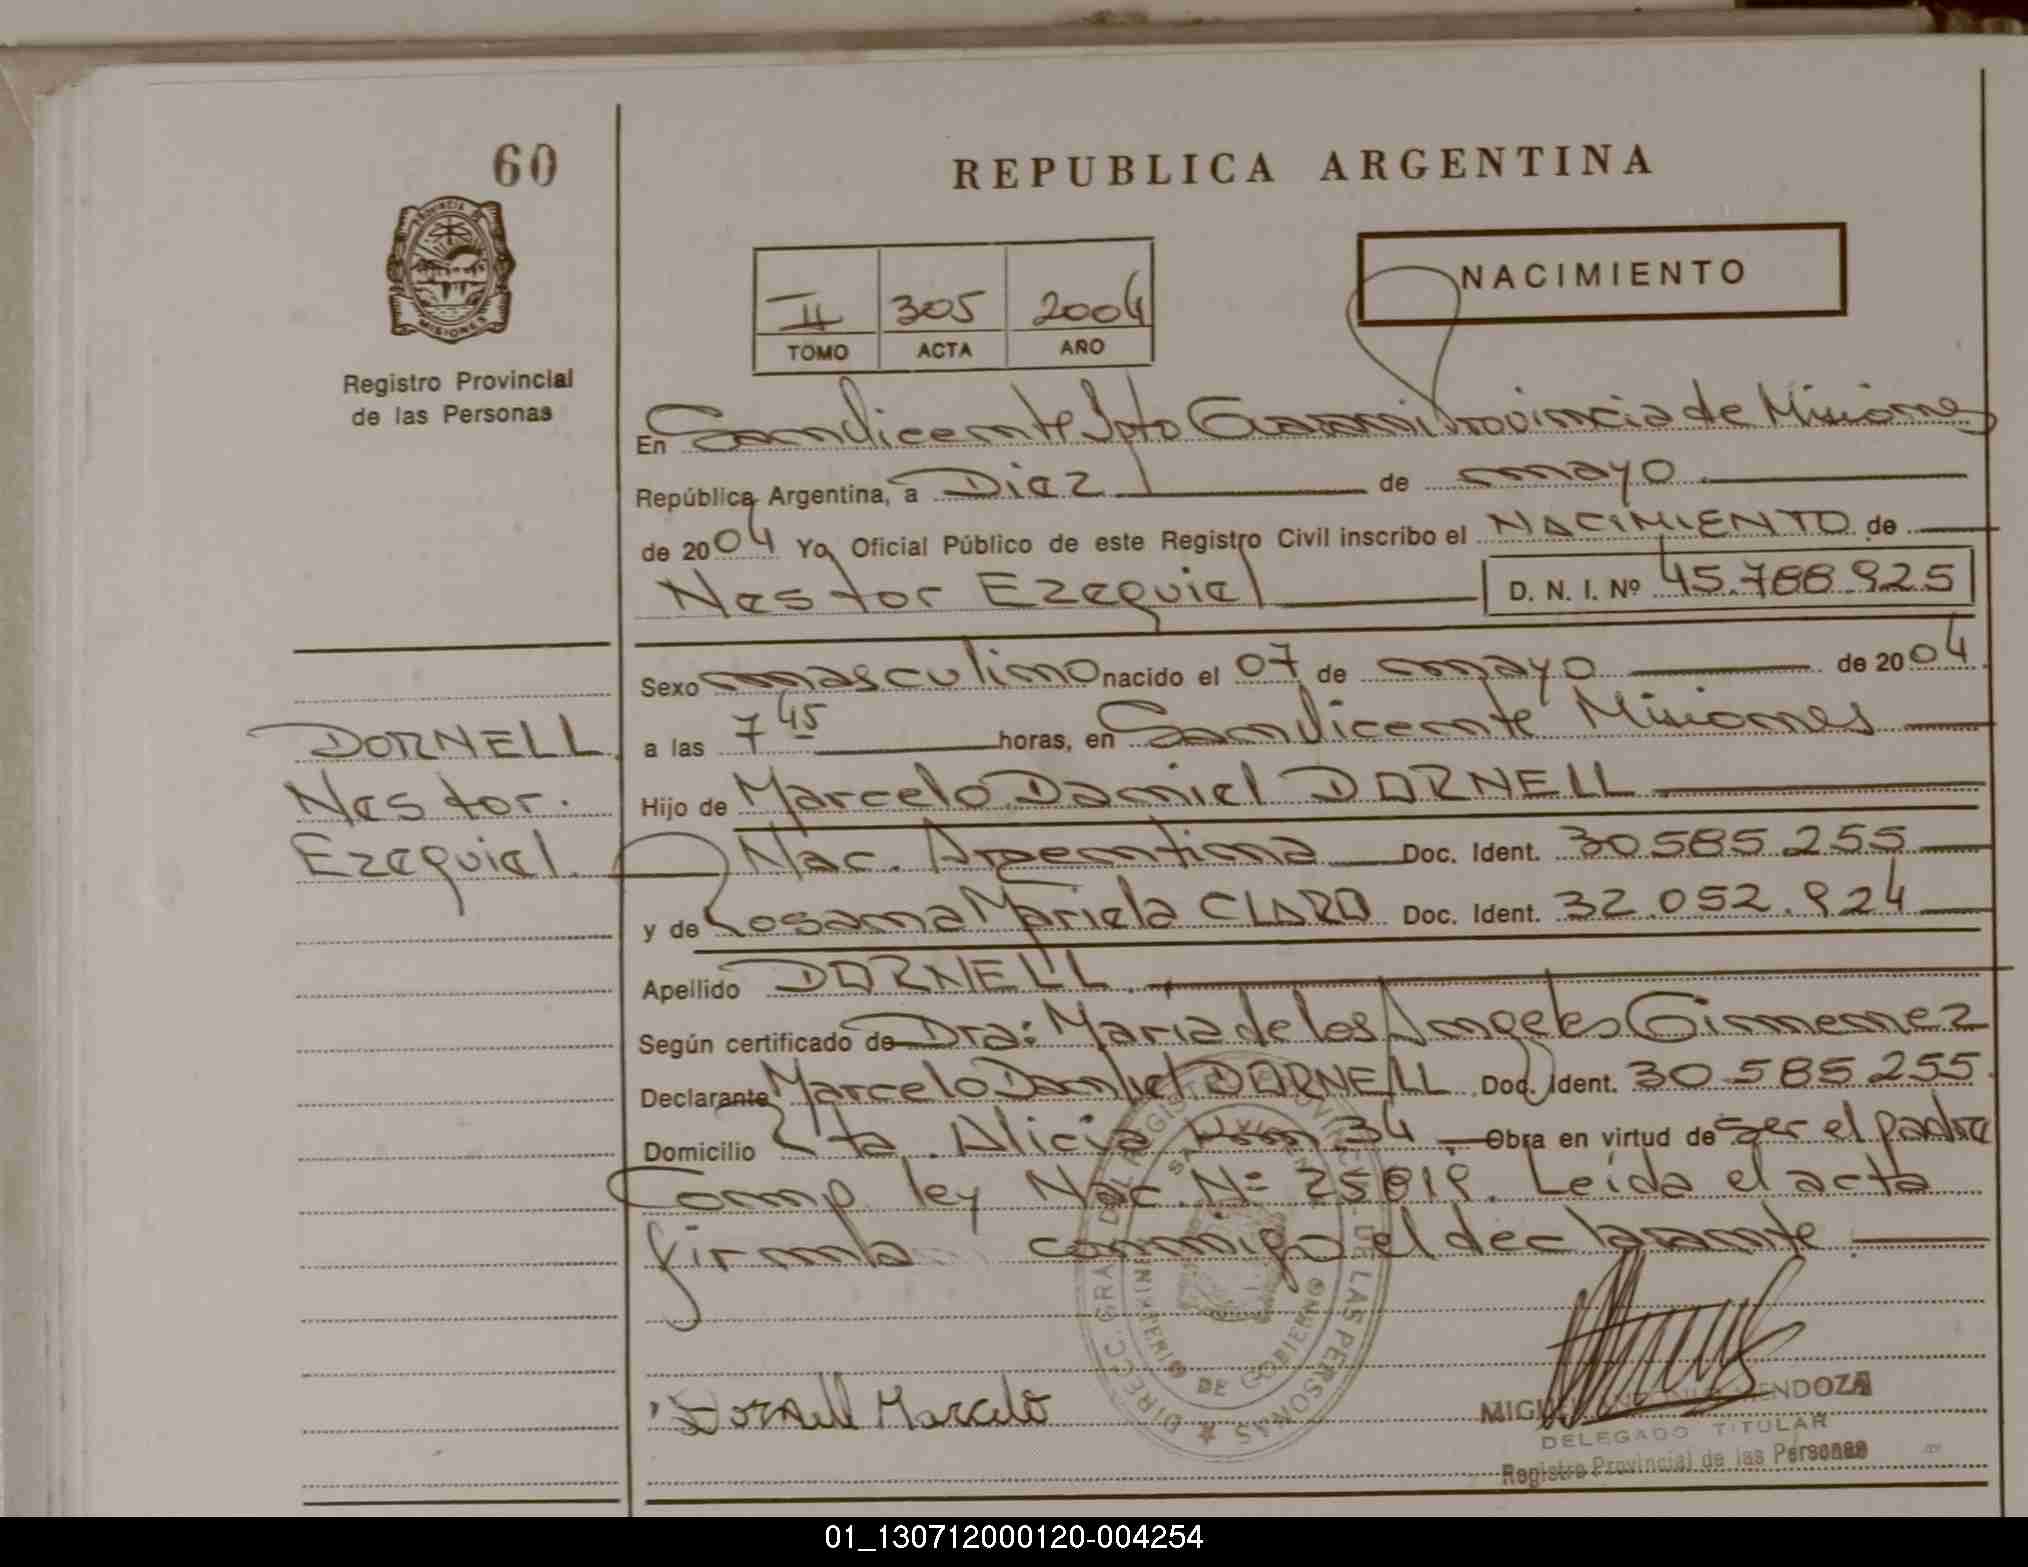 60
REPUBLICA ARGENTINA
PROVINCIA DE
MISIONES
Registro Provincial
de las Personas
NACIMIENTO
II 305 2004
TOMO ACTA AÑO
En San Vicente Dpto Guarani Provincia de Misiones
República Argentina, a Diez de mayo
de 2004 Yo, Oficial Público de este Registro Civil inscribo el NACIMIENTO de
Nestor Ezequiel D. N. I. Nº 45.788.925
Sexo masculino nacido el 07 de mayo de 2004
DORNELL
Nestor.
Ezequiel.
a las 7 45 horas, en San Vicente Misiones
Hijo de Marcelo Daniel DORNELL
Nac. Argentina Doc. Ident. 30.585.255
y de Rosana Mariela CLARO Doc. Ident. 32.052.924
Apellido DORNELL
Según certificado de Dra: Maria de los Angeles Gimenez
Declarante Marcelo Daniel DORNELL Doc. Ident. 30.585.255.
Domicilio Rta. Alicia Km 34 Obra en virtud de ser el padre
Comp. ley Nac. Nº 25819. Leída el acta
firma conmigo el declarante.
DIRECC. GRAL DEL REGISTRO PROVINCIAL DE LAS PERSONAS
MINISTERIO DE GOBIERNO
Dornell Marcelo
MIGUEL ANTONIO MENDOZA
DELEGADO TITULAR
Registro Provincial de las Personas
01_130712000120-004254